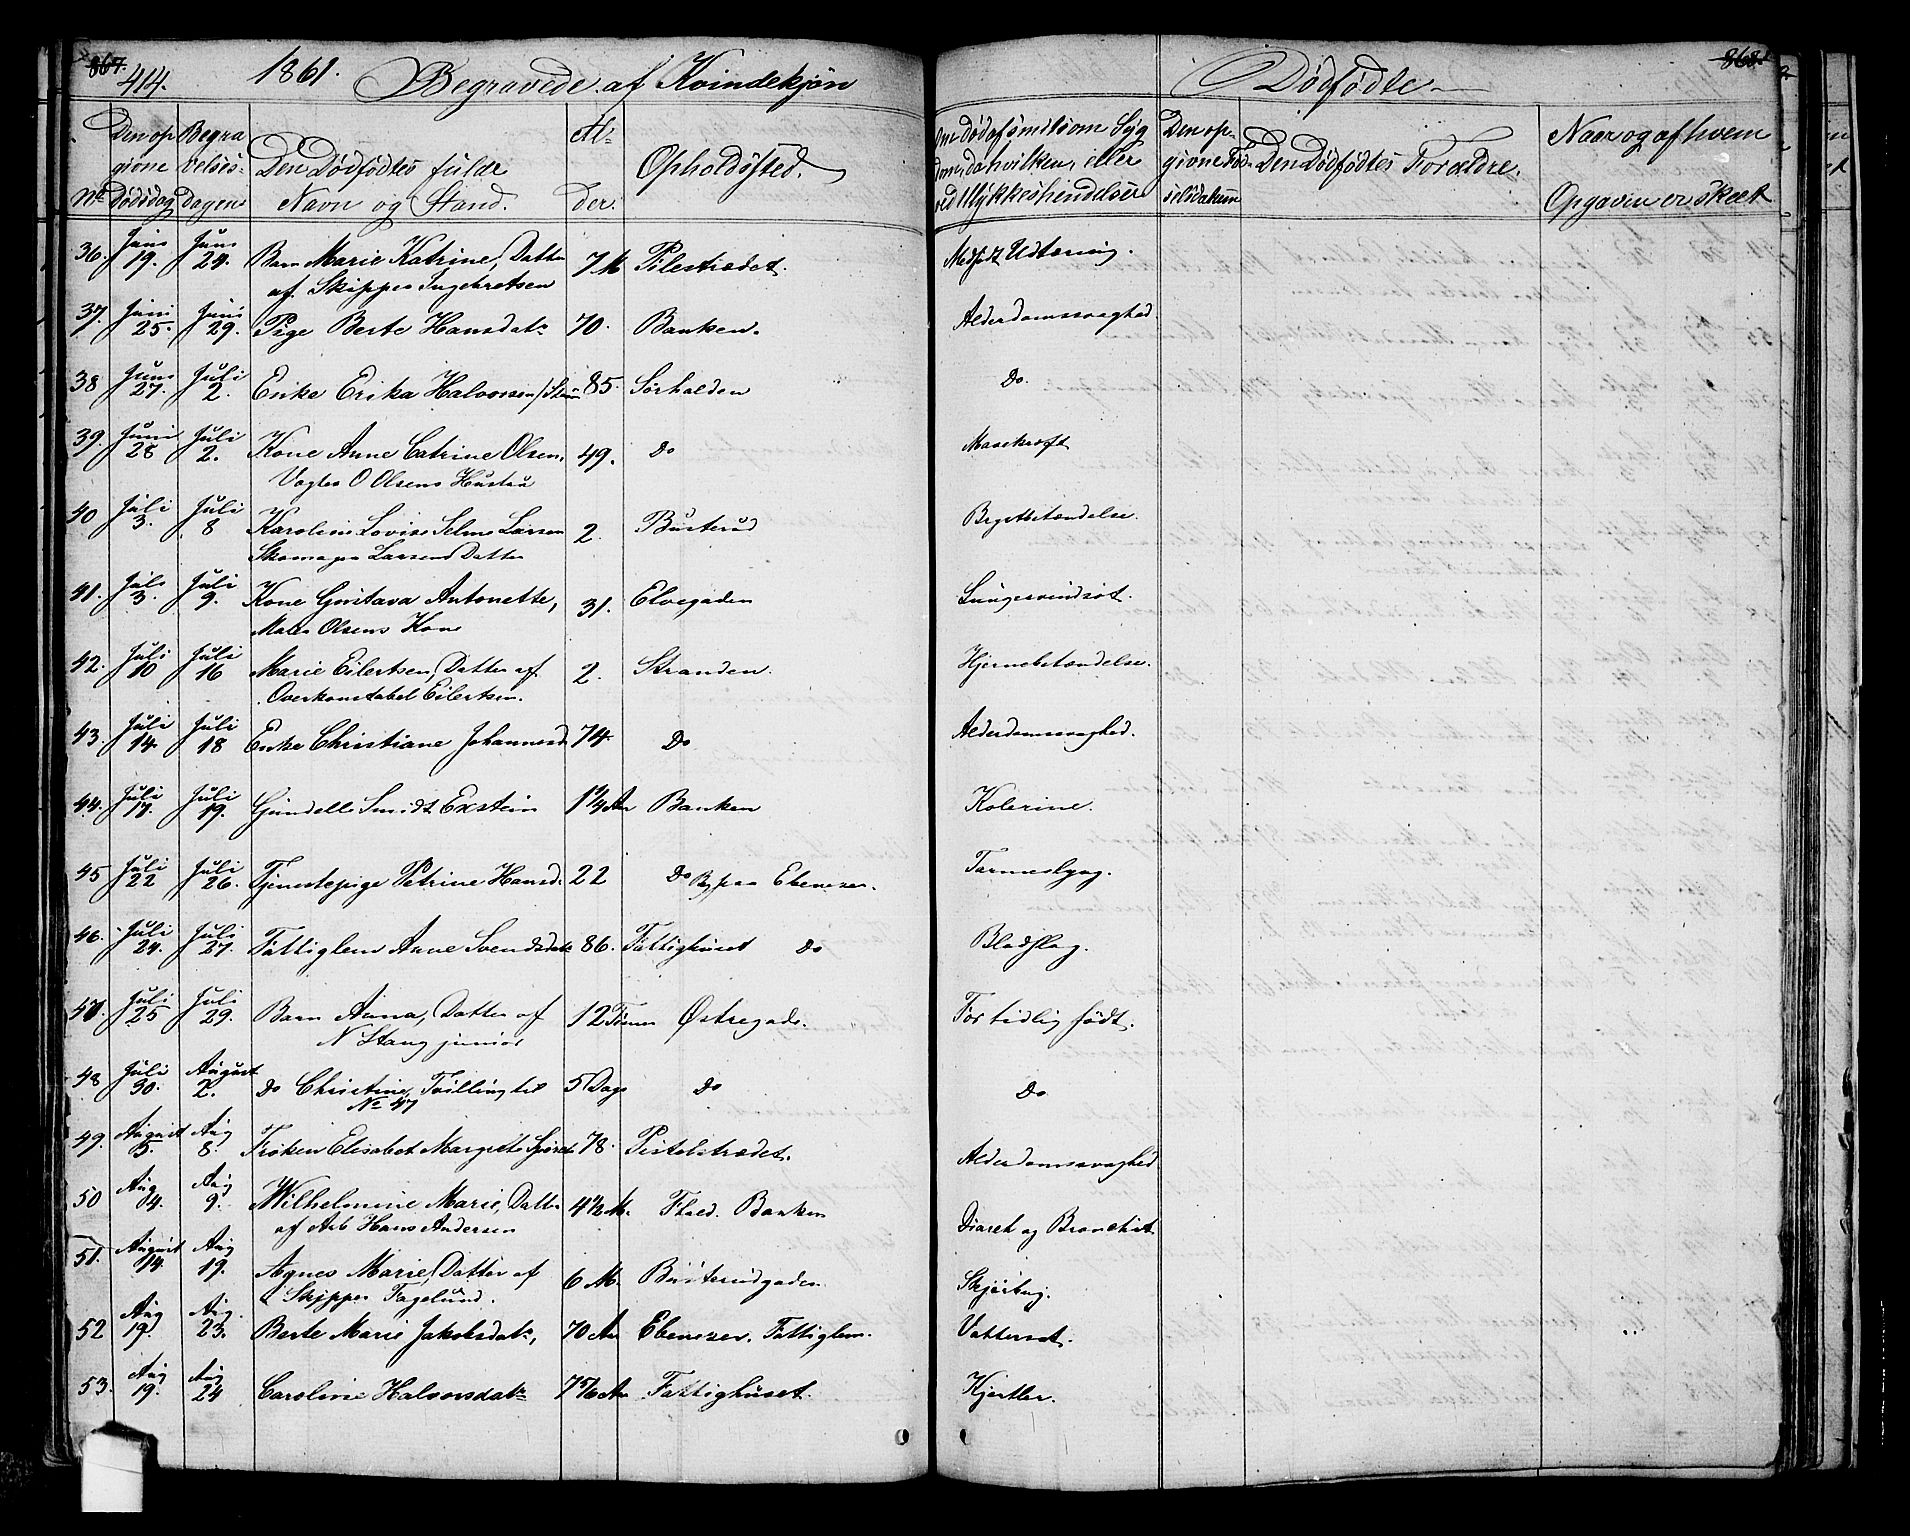 867. 414. 1861. Begravede af Kvindekjøn Dødfødte 868.
No Den opgivne Dødsdag Begravelses-Dagen Den Dødfødtes fulde Navn og Stand. Alder. Opholdssted. Om Død af smitsom Sygdom, da hvilken, eller ved Ulykkeshendelser Den opgivne Fødselsdatum Den Dødfødtes Forældre. Naar og af hvem Opgaven er skeet
36. Juni 19. Juni 24. Barn Marie Katrine, Datter 7 M Pilestrædet. Medfødt Udtæring.
af Skipper Ingebretsen
37. Juni 25. Juni 29. Pige Berte Hansdatr 70. Banken. Alderdomssvaghed
38 Juni 27. Juli 2. Enke Erika Halvorsen / 85. Sørhalden Do.
39. Juni 28 Juli 2. Kone Anne Catrine Olsen, 49. Do Mavekræft
Vogter O Olsens Hustru
40 Juli 3. Juli 8 Karoline Lovise Selma Larsen 2. Busterud Brystbetændelse.
Skomager Larsens Datter
41. Juli 3. Juli 9. Kone Gustava Antonette, 31. Elvegaden Lungesvindsot.
Maler Olsens Kone
42. Juli 10 Juli 16 Marie Eilertsen, Datter af 2. Stranden. Hjernebetændelse.
Overkonstabel Eilertsen.
43. Juli 14. Juli 18 Enke Christiane Johannesd. 74. Do Alderdomssvaghed.
44. Juli 17. Juli 19. Gundelle Smidt Exstein 1 1/4 Aar Banken Kolerine.
45 Juli 22 Juli 26. Tjenestepige Petrine Hansd. 22 Do paa Ebeneser. Tarmeslyng.
46. Juli 24. Juli 27. Fattiglem Anne Svendsdatr 86. Fattighuset Do Blodslag.
47. Juli 25 Juli 29. Barn Anna, Datter af 12 Timer Østregade. For tidlig født.
N Stang junior
48 Juli 30. August 2. Do Christine, Tvilling til 5 Dage Do Do
No 47
49. August 5. Aug 8. Frøken Elisabet Margrete 78. Pistolstrædet. Alderdomssvaghed
50 Aug 4. Aug 9. Wilhelmine Marie, Datter 4 1/2 M. Banken Diaret og Bronchit
af Arb Hans Andersen
51. August 14. Aug 19. Agnes Marie, Datter af 6 M. Busterudgaden
Skipper Fagelund.
52 Aug 19. Aug. 23. Berte Marie Jakobsdatr, 70 Aar Ebeneser, Fattiglem. Vattersot.
53. Aug 19. Aug 24 Caroline Halvorsdatr 7 5/6 Aar Fattighuset. Kjertler.